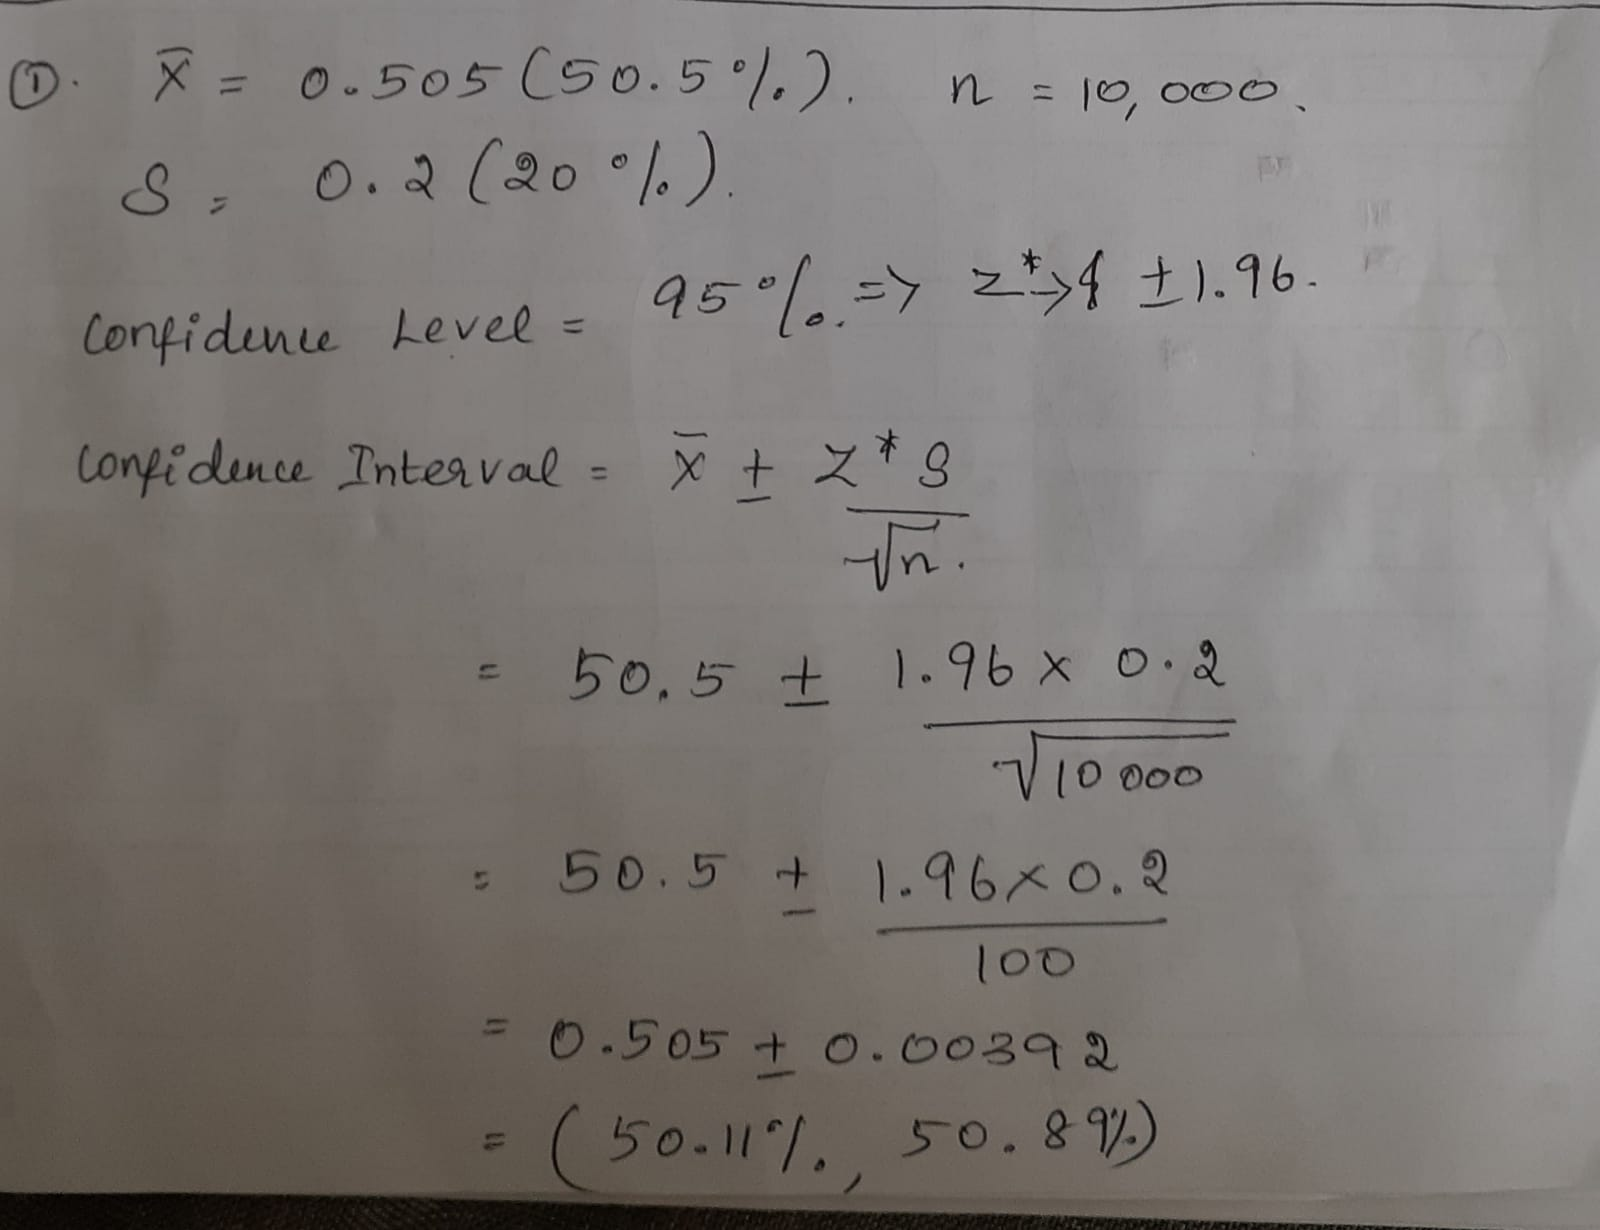 ①. x̄ = 0.505 (50.5%). n = 10,000.
S = 0.2 (20%).
Confidence Level = 95%. => z* → ±1.96.
Confidence Interval = x̄ ± z* S
√n.
= 50.5 ± 1.96 x 0.2
√10000
= 50.5 ± 1.96 x 0.2
100
= 0.505 ± 0.00392
= (50.11%, 50.89%)